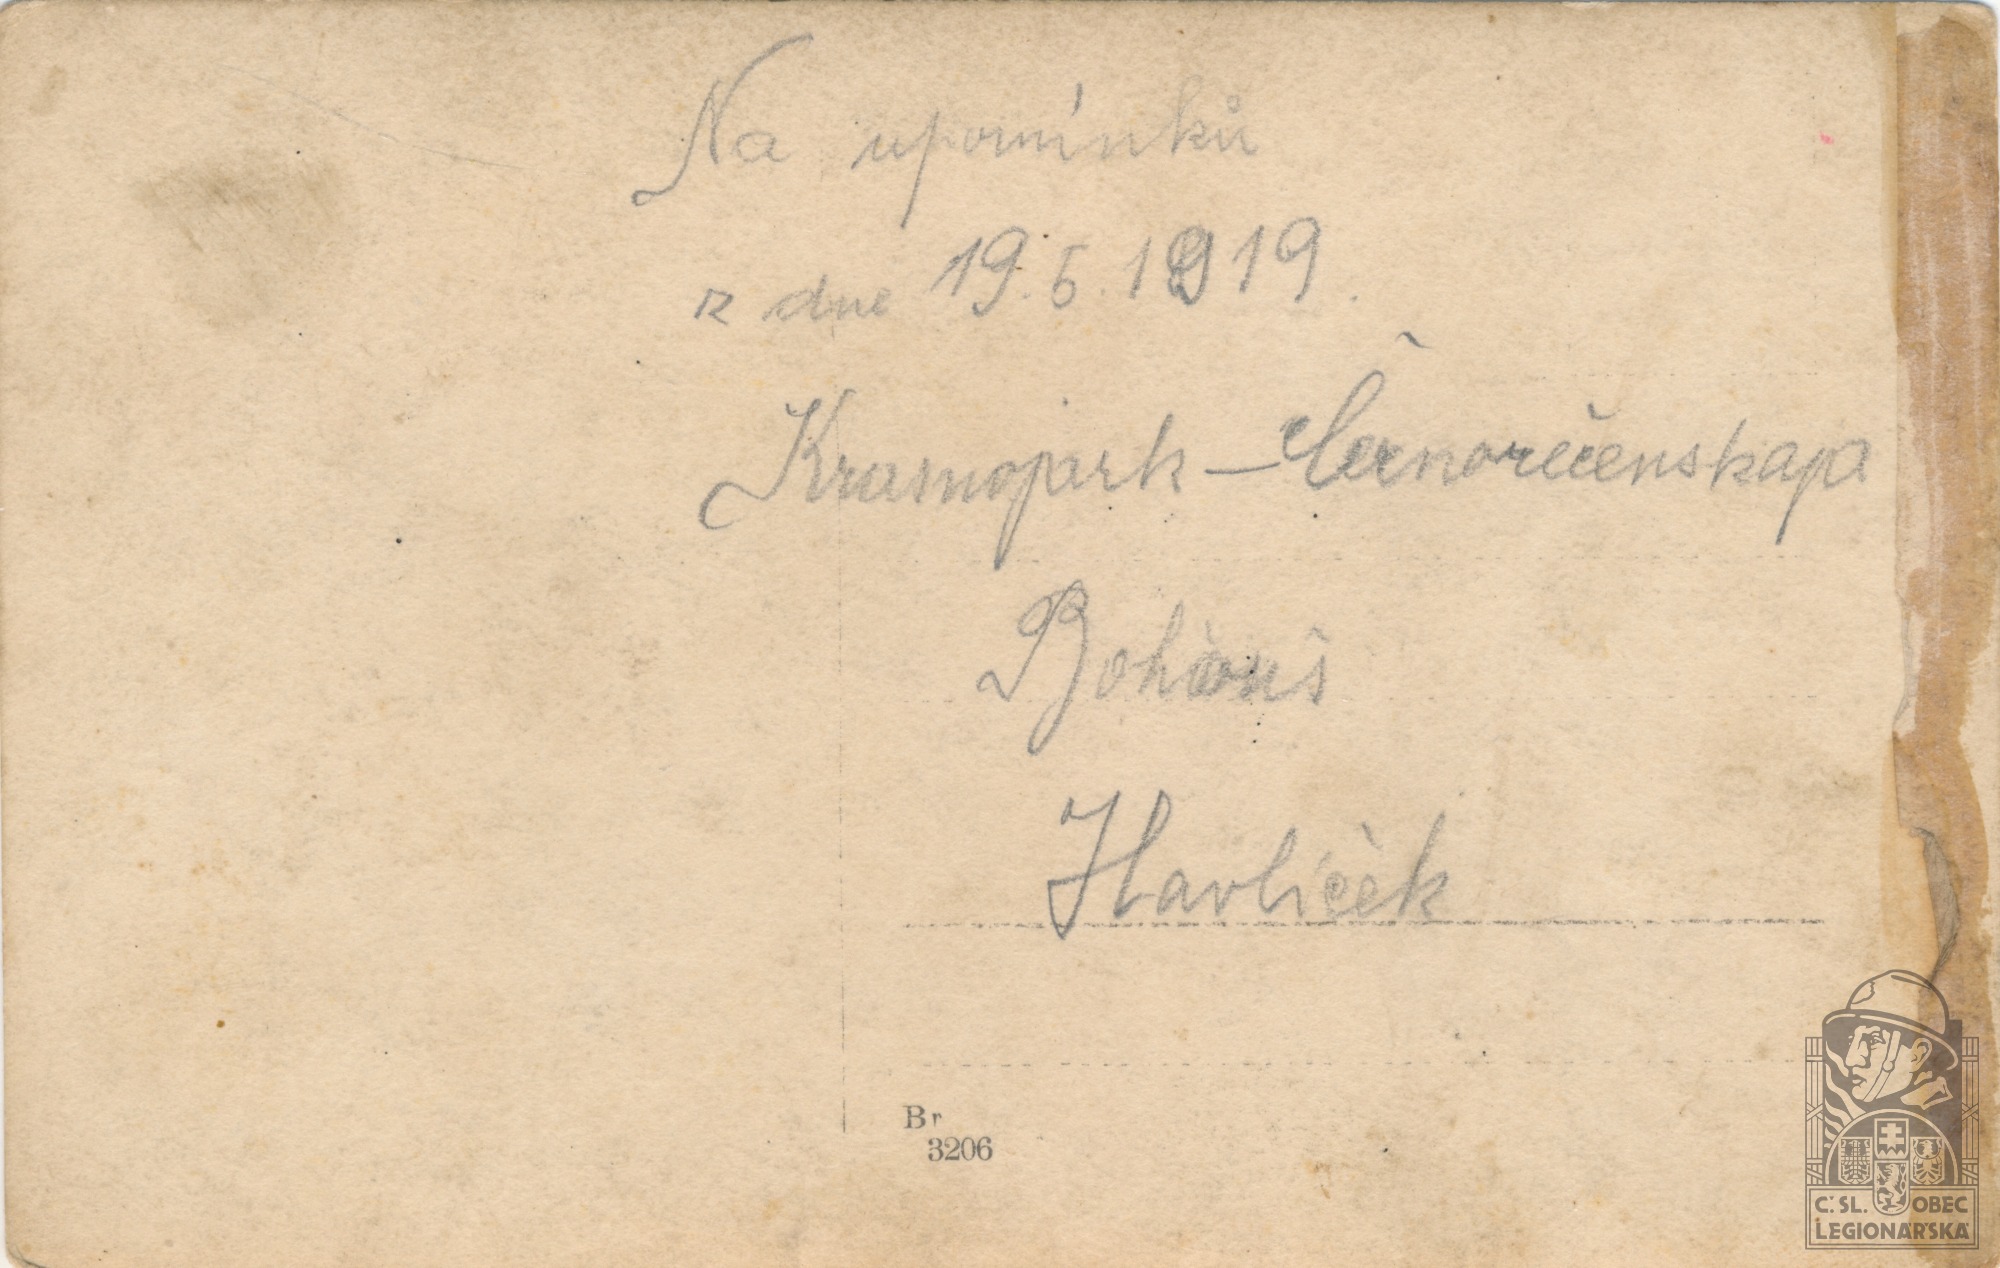 Na upomínků
z dne 19.5.1919.
Krasnojark – Černorečenskaja
Bohouš
Havlíček
Br
3206
Č.SL. OBEC
LEGIONÁŘSKÁ